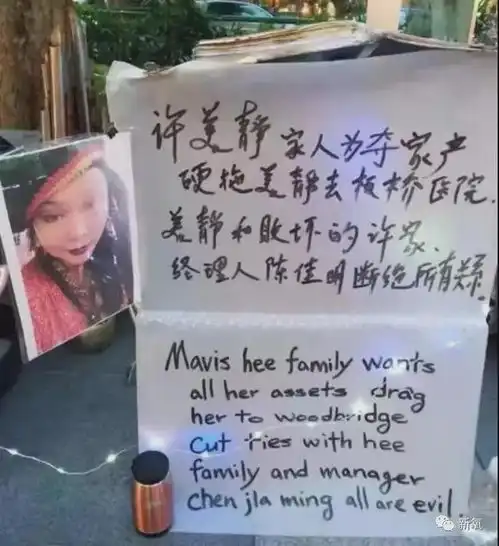 许美静家人为夺家产
硬拖美静去板桥医院.
美静和败坏的许家.
经理人陈佳明断绝所有关系.
Mavis hee family wants
all her assets drag
her to woodbridge
cut ties with hee
family and manager
chen jia ming all are evil.
新氧